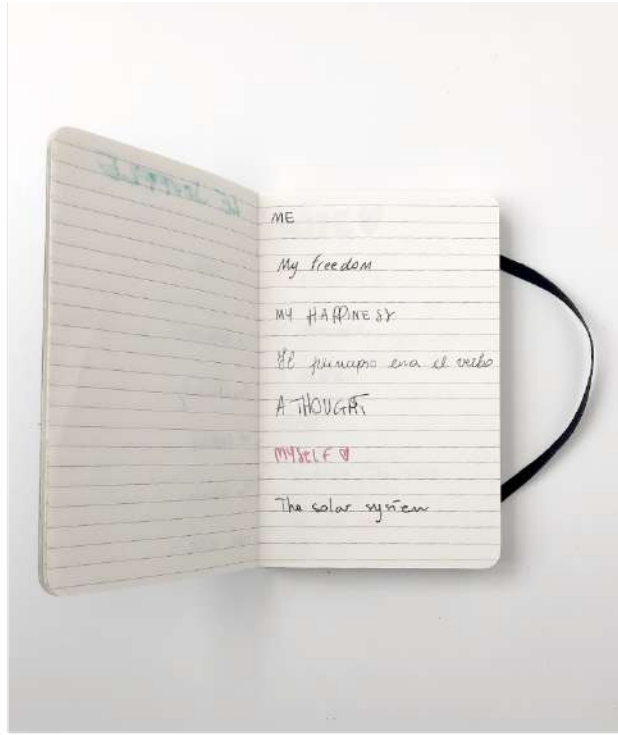 ME
My freedom
MY HAPPINESS
El principio era el verbo
A THOUGHT
MYSELF
The solar system